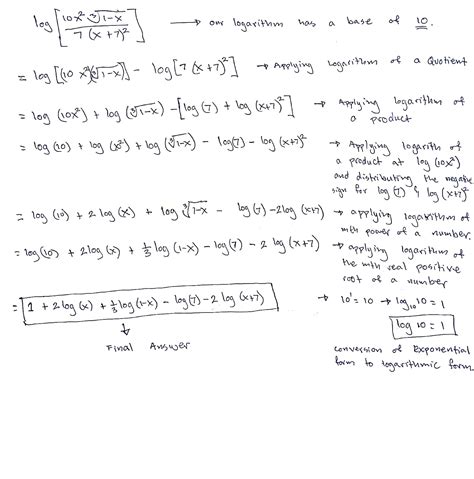 log [10x² ∛1-x / 7 (x+7)²] → our logarithm has a base of 10.
= log [(10 x²)(∛1-x)] - log [7 (x+7)²] → Applying logarithm of a Quotient
= log (10x²) + log (∛1-x) - [log (7) + log (x+7)²] → Applying logarithm of
a product
= log (10) + log (x²) + log (∛1-x) - log(7) - log (x+7)² → Applying logarith of
a product at log (10x²)
and distributing the negative
sign for log (7) & log (x+7)²
= log (10) + 2 log (x) + log ∛1-x - log (7) - 2log (x+7) → applying logarithm of
mth power of a number.
= log(10) + 2log (x) + 1/3 log (1-x) - log(7) - 2 log (x+7) → applying logarithm of
the mth real positive
root of a number
= 1 + 2 log (x) + 1/3 log (1-x) - log(7) - 2 log (x+7) → 10¹ = 10 → log₁₀ 10 = 1
↓
Final Answer
log 10 = 1
conversion of Exponential
form to logarithmic form.